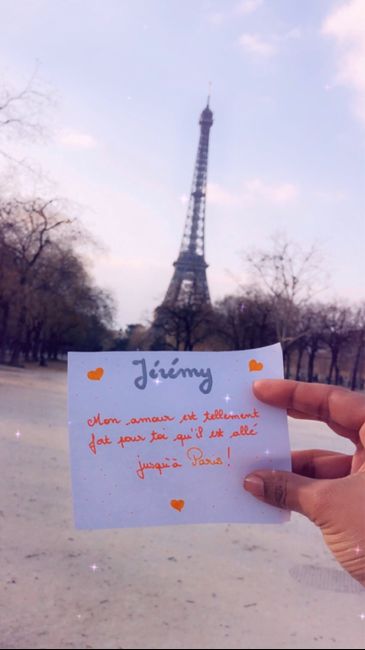 Jérémy
Mon amour est tellement
fort pour toi qu'il est allé
jusqu'à Paris !